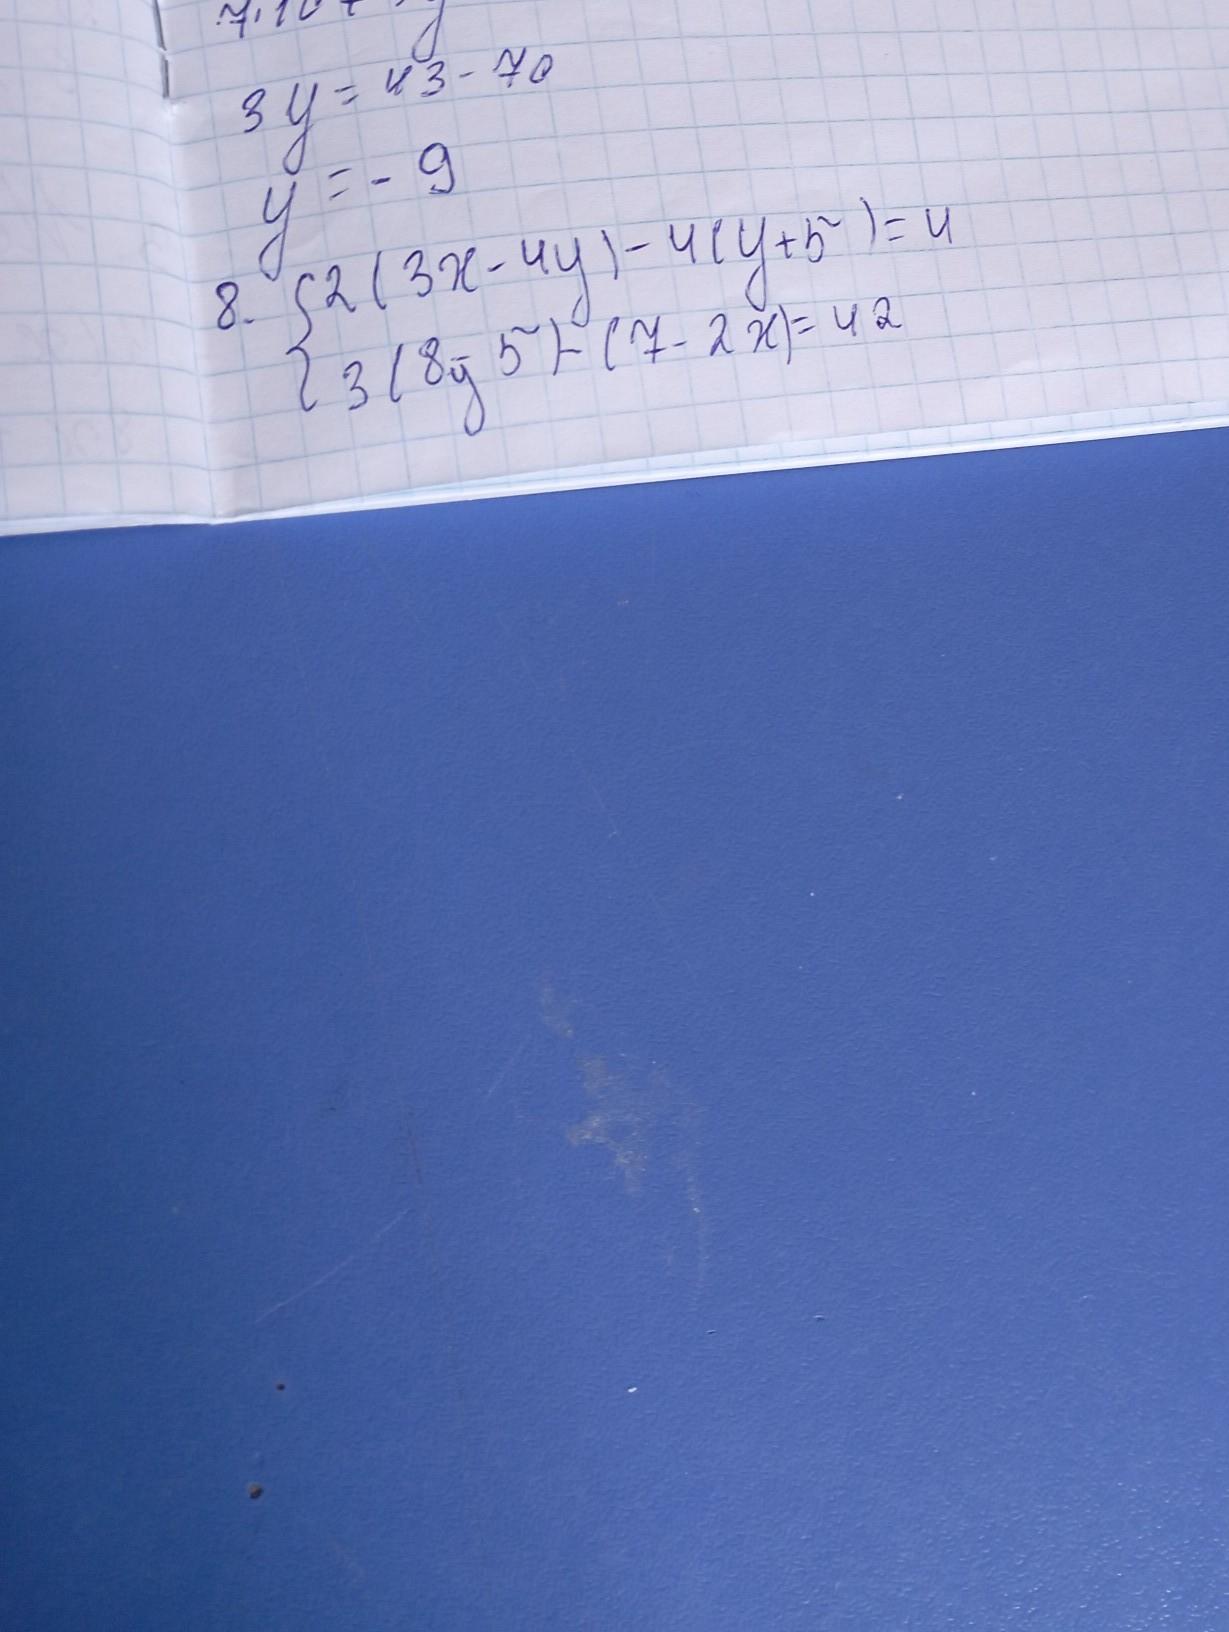 3y = 43 - 70
y = - 9
8. { 2(3x - 4y) - 4(y + 5) = 4
3(8y - 5) - (7 - 2x) = 42